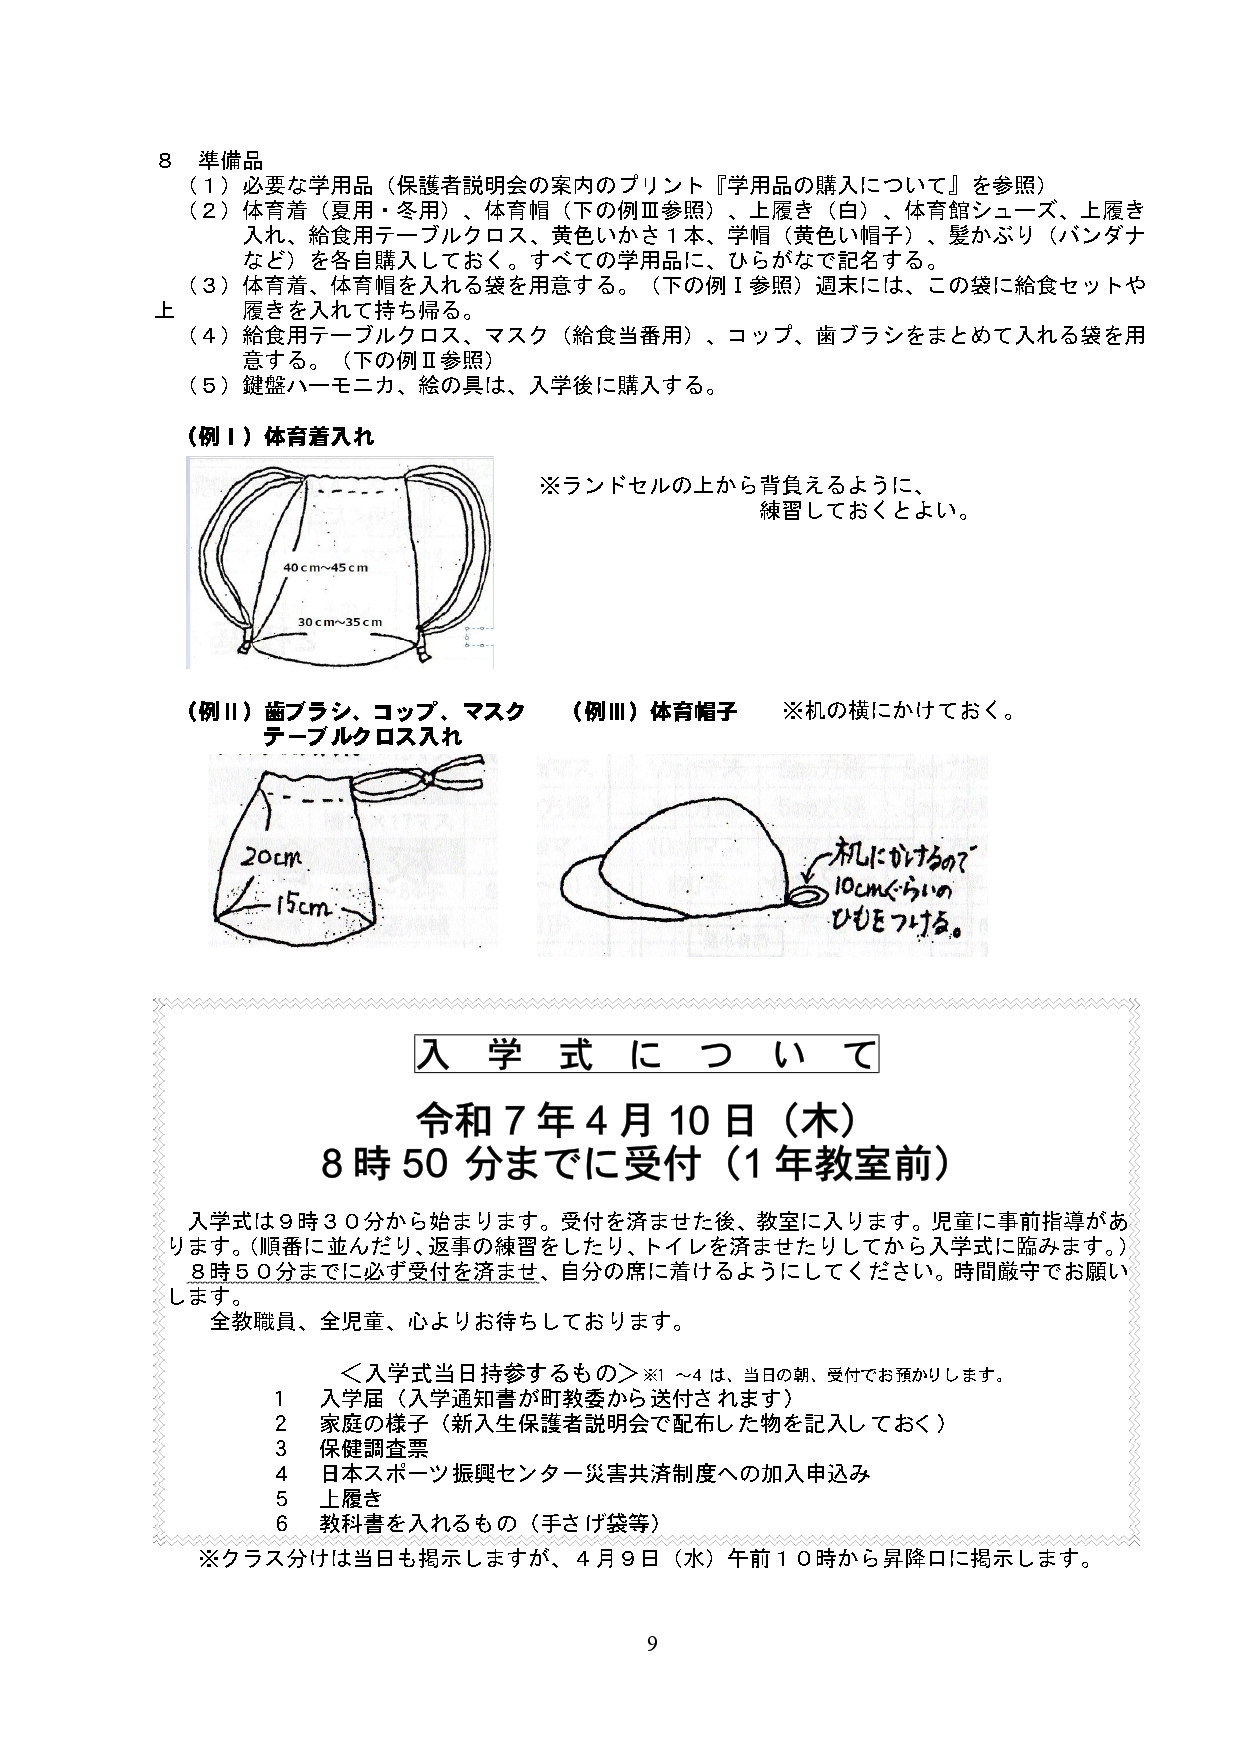 ８　準備品
（１）必要な学用品（保護者説明会の案内のプリント『学用品の購入について』を参照）
（２）体育着（夏用・冬用）、体育帽（下の例Ⅲ参照）、上履き（白）、体育館シューズ、上履き
入れ、給食用テーブルクロス、黄色いかさ１本、学帽（黄色い帽子）、髪かぶり（バンダナ
など）を各自購入しておく。すべての学用品に、ひらがなで記名する。
（３）体育着、体育帽を入れる袋を用意する。（下の例Ⅰ参照）週末には、この袋に給食セットや
上　　　履きを入れて持ち帰る。
（４）給食用テーブルクロス、マスク（給食当番用）、コップ、歯ブラシをまとめて入れる袋を用
意する。（下の例Ⅱ参照）
（５）鍵盤ハーモニカ、絵の具は、入学後に購入する。
（例Ⅰ）体育着入れ
※ランドセルの上から背負えるように、
練習しておくとよい。
40cm～45cm
30cm～35cm
（例Ⅱ）歯ブラシ、コップ、マスク　（例Ⅲ）体育帽子　※机の横にかけておく。
テーブルクロス入れ
20cm
15cm
机にかけるので
10cmぐらいの
ひもをつける。
入学式について
令和７年４月10日（木）
８時50分までに受付（1年教室前）
入学式は９時３０分から始まります。受付を済ませた後、教室に入ります。児童に事前指導があ
ります。（順番に並んだり、返事の練習をしたり、トイレを済ませたりしてから入学式に臨みます。）
８時５０分までに必ず受付を済ませ、自分の席に着けるようにしてください。時間厳守でお願い
します。
全教職員、全児童、心よりお待ちしております。
＜入学式当日持参するもの＞※1～4は、当日の朝、受付でお預かりします。
1　入学届（入学通知書が町教委から送付されます）
2　家庭の様子（新入生保護者説明会で配布した物を記入しておく）
3　保健調査票
4　日本スポーツ振興センター災害共済制度への加入申込み
5　上履き
6　教科書を入れるもの（手さげ袋等）
※クラス分けは当日も掲示しますが、４月９日（水）午前１０時から昇降口に掲示します。
9